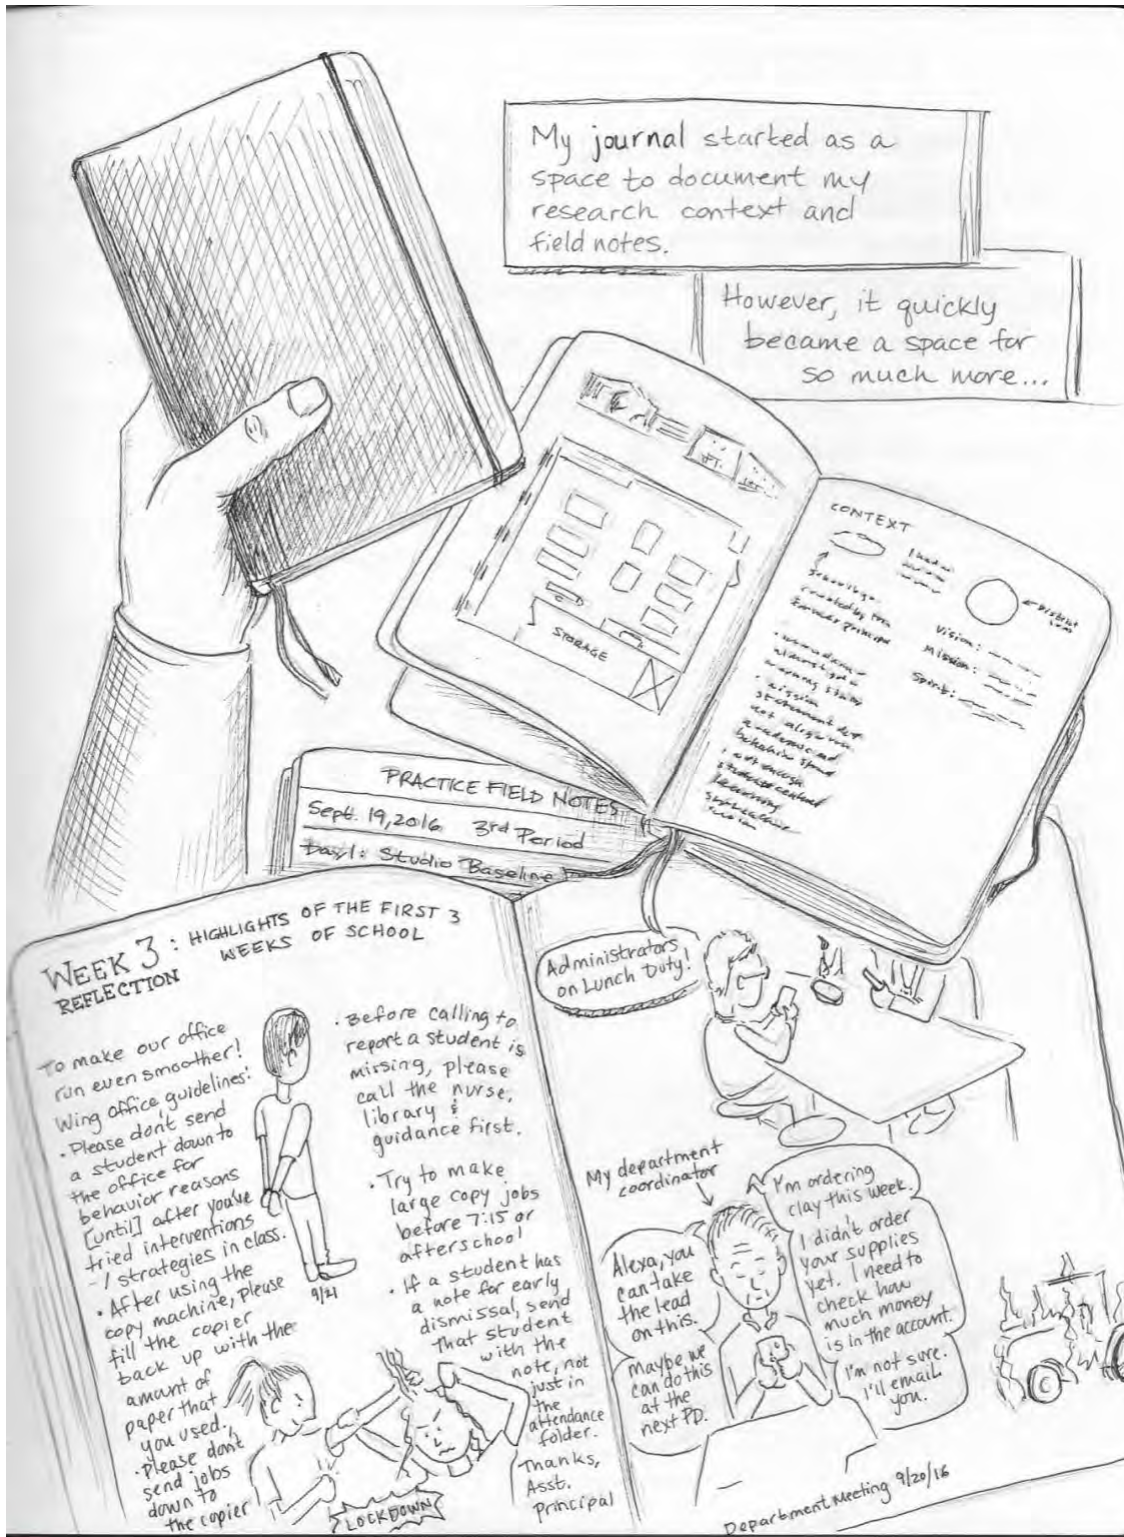 My journal started as a
space to document my
research context and
field notes.
However, it quickly
became a space for
so much more...
STORAGE
CONTEXT
created by the
former principal
Vision:
Mission:
Spirit:
PRACTICE FIELD NOTES
Sept. 19, 2016 3rd Period
Day 1: Studio Baseline
WEEK 3: HIGHLIGHTS OF THE FIRST 3
WEEKS OF SCHOOL
REFLECTION
To make our office
run even smoother!
Wing office guidelines:
• Please don't send
a student down to
the office for
behavior reasons
[until] after you've
tried interventions
-/strategies in class.
• After using the
copy machine, please
fill the copier
back up with the
amount of
paper that
you used.
• Please don't
send jobs
down to
the copier
9/21
• Before calling to
report a student is
missing, please
call the nurse,
library &
guidance first.
• Try to make
large copy jobs
before 7:15 or
afterschool
• If a student has
a note for early
dismissal, send
that student
with the
note, not
just in
the
attendance
folder.
Thanks,
Asst.
Principal
LOCKDOWN
Administrators
on Lunch Duty!
My department
coordinator
Alexa, you
can take
the lead
on this.
Maybe we
can do this
at the
next PD.
I'm ordering
clay this week.
I didn't order
your supplies
yet. I need to
check how
much money
is in the account.
I'm not sure.
I'll email
you.
Department Meeting 9/20/16